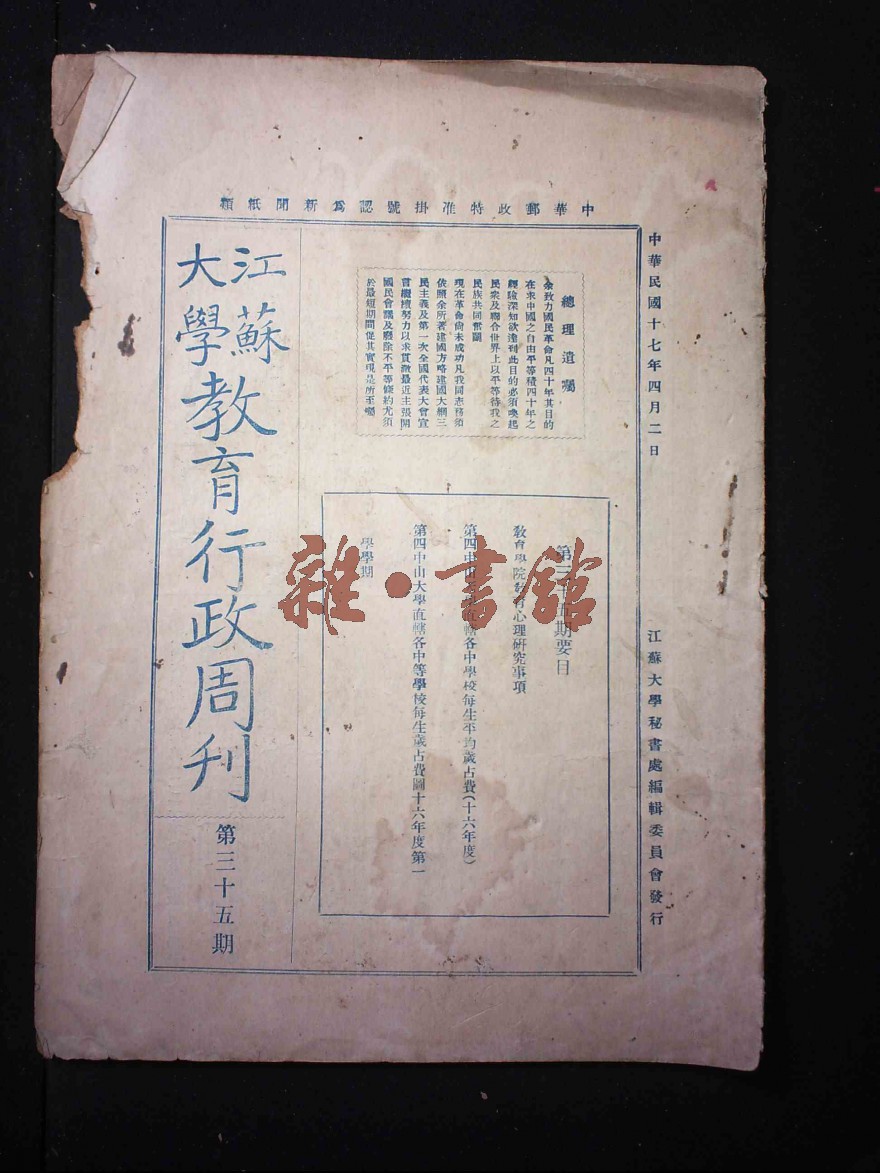 中華郵政特准掛號認爲新聞紙類
中華民國十七年四月二日
江蘇大學秘書處編輯委員會發行
總理遺囑
余致力國民革命凡四十年其目的
在求中國之自由平等積四十年之
經驗深知欲達到此目的必須喚起
民衆及聯合世界上以平等待我之
民族共同奮鬭
現在革命尙未成功凡我同志務須
依照余所著建國方略建國大綱三
民主義及第一次全國代表大會宣
言繼續努力以求貫澈最近主張開
國民會議及廢除不平等條約尤須
於最短期間促其實現是所至囑
第三十五期要目
教育學院教育心理研究事項
第四中山大學直轄各中學校每生平均歲占費(十六年度)
第四中山大學直轄各中等學校每生歲占費圖十六年度第一
學學期
江蘇
大學
教育行政周刊
第三十五期
雜·書館